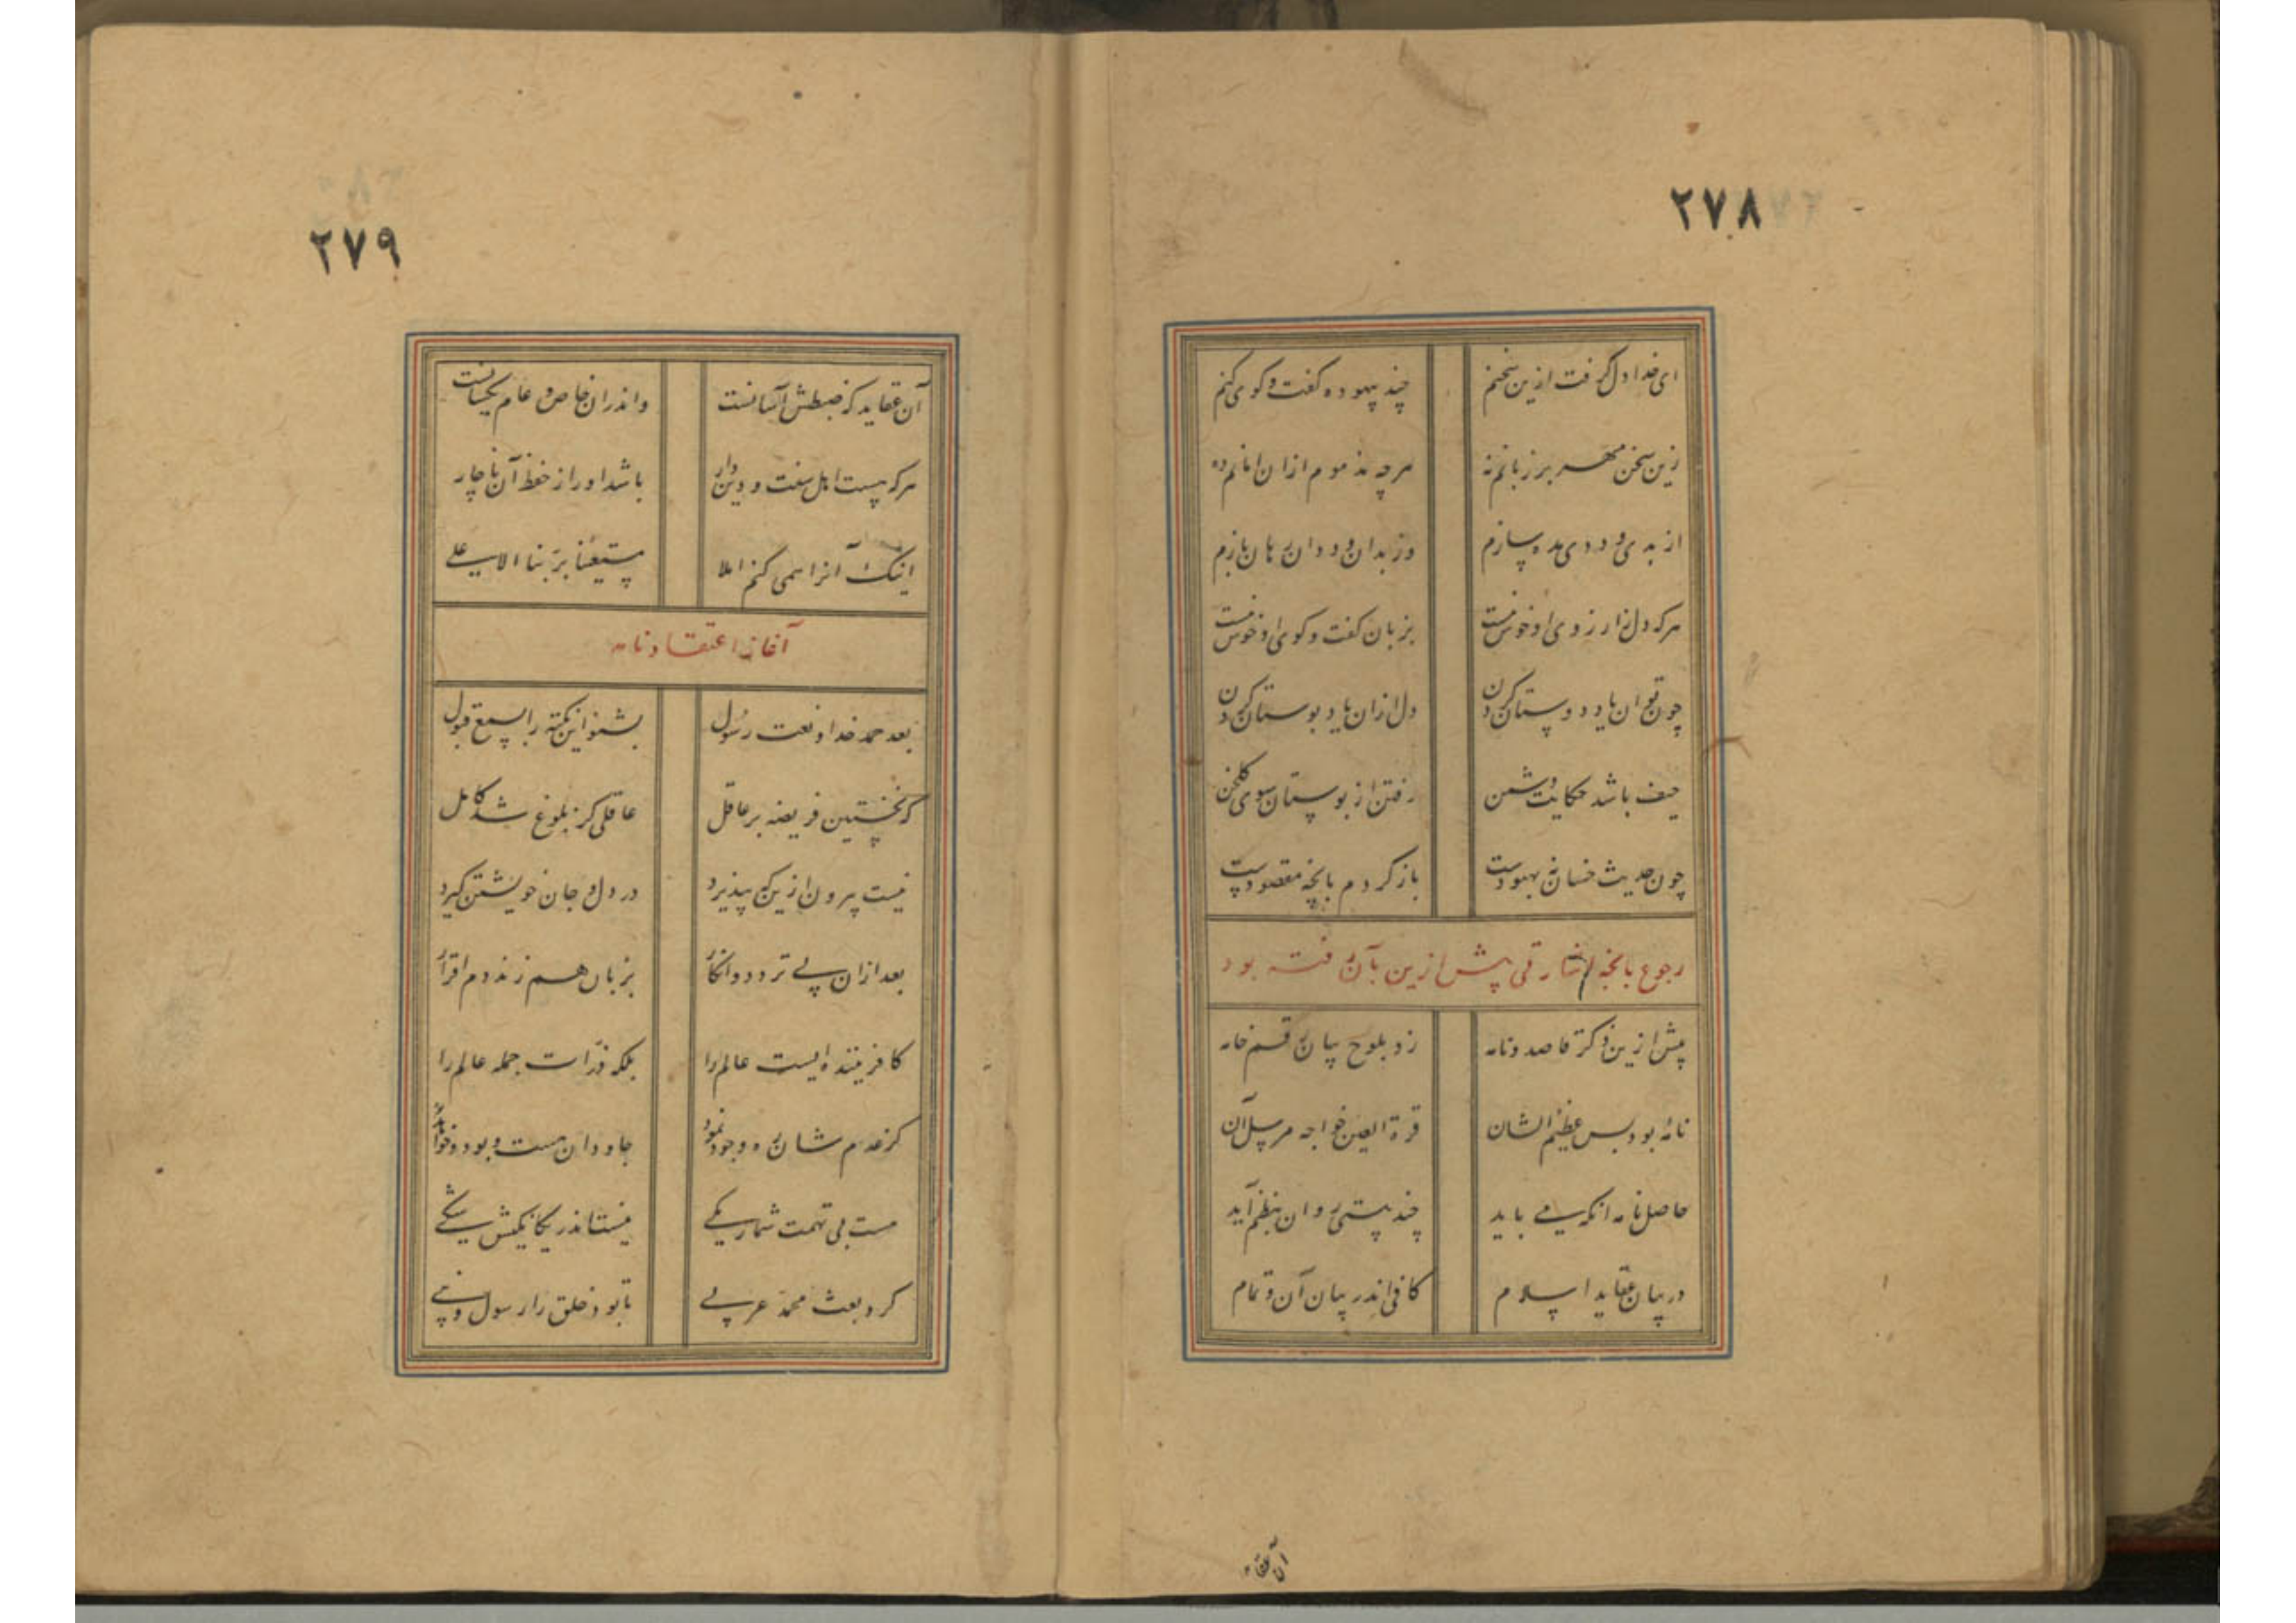 ۲۷۸
ای خدا دل گرفت ازین سخنم چند بیهوده گفت و گوی کنم
زین سخن مهر بر زبانم نه هرچه مذموم ازان امانم ده
از بدی و ددی بده سازم وز بدان و ددان رهان بازم
هرکه دل ز آرزوی او خوش نیست بزبان گفت و گوی او خوش نیست
چون توان یاد دوستان کردن دل ازان یاد بوستان کردن
حیف باشد حکایت دشمن رفتن از بوستان سوی گلخن
چون حدیث خسان نه بهبودست باز گردم بانچه مقصودست
رجوع بانچه اشارتی پیش ازین بآن رفته بود
پیش ازین ذکر قاصد و نامه زد بلوح بیان رقم خامه
نامه بود بس عظیم الشان قرة العین خواجه مرسل آن
حاصل نامه آنکه می باید چند بیتی روان بنظم آید
در بیان عقاید اسلام کافی اندر بیان آن و تمام
آن عقاید
۲۷۹
آن عقاید که ضبطش آسانست واندران خاص و عام یکسانست
هرکه هست اهل سنت و دین دار باشد او را ز حفظ آن ناچار
اینک آنرا همی کنم املا مستعینا بربنا الاعلی
آغاز اعتقادنامه
بعد حمد خدا و نعت رسول بشنو این نکته را بسمع قبول
که نخستین فریضه بر عاقل عاقلی کز بلوغ شد کامل
نیست بیرون ازین که بپذیرد در دل و جان خویشتن گیرد
بعد ازان بی تردد و انکار بزبان هم زند دم اقرار
کافریننده ایست عالم را بلکه ذرات جمله عالم را
کز عدم شان ره وجود نمود جاودان هست و بود و خواهد بود
هست بی تهمت شمار یکی نیست اندر یگانگیش شکی
کرد بعث محمد عربی تا بود خلق را رسول و نبی